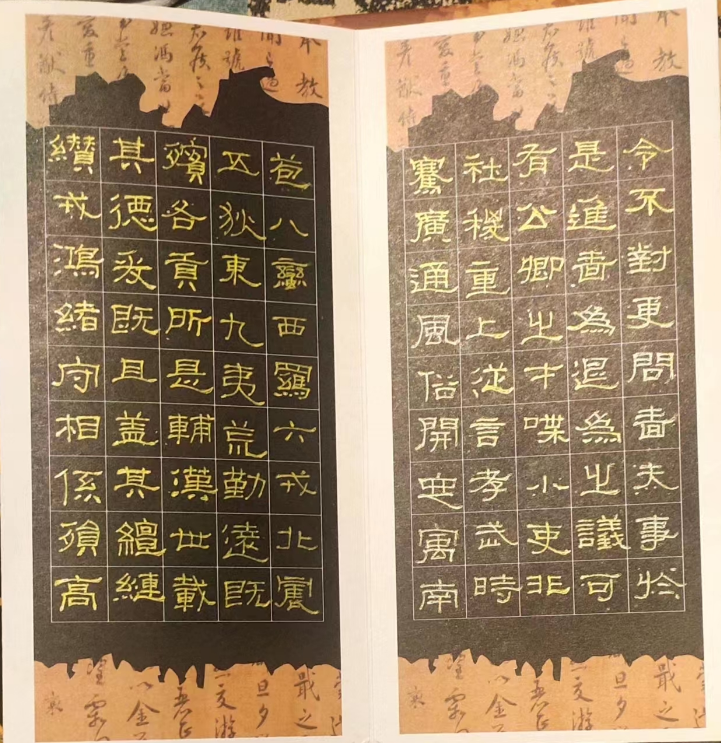 令不對更問嗇夫事於
是進嗇為退為之議可
有公卿之才喋小吏非
社稷重上從言孝武時
騫廣通風俗開定寓南
苞八蠻西羈六戎北震
五狄東九夷荒勤遠既
殯各貢所是輔漢世載
其德爰既且蓋其繵縺
纘戎鴻緒守相係殞高